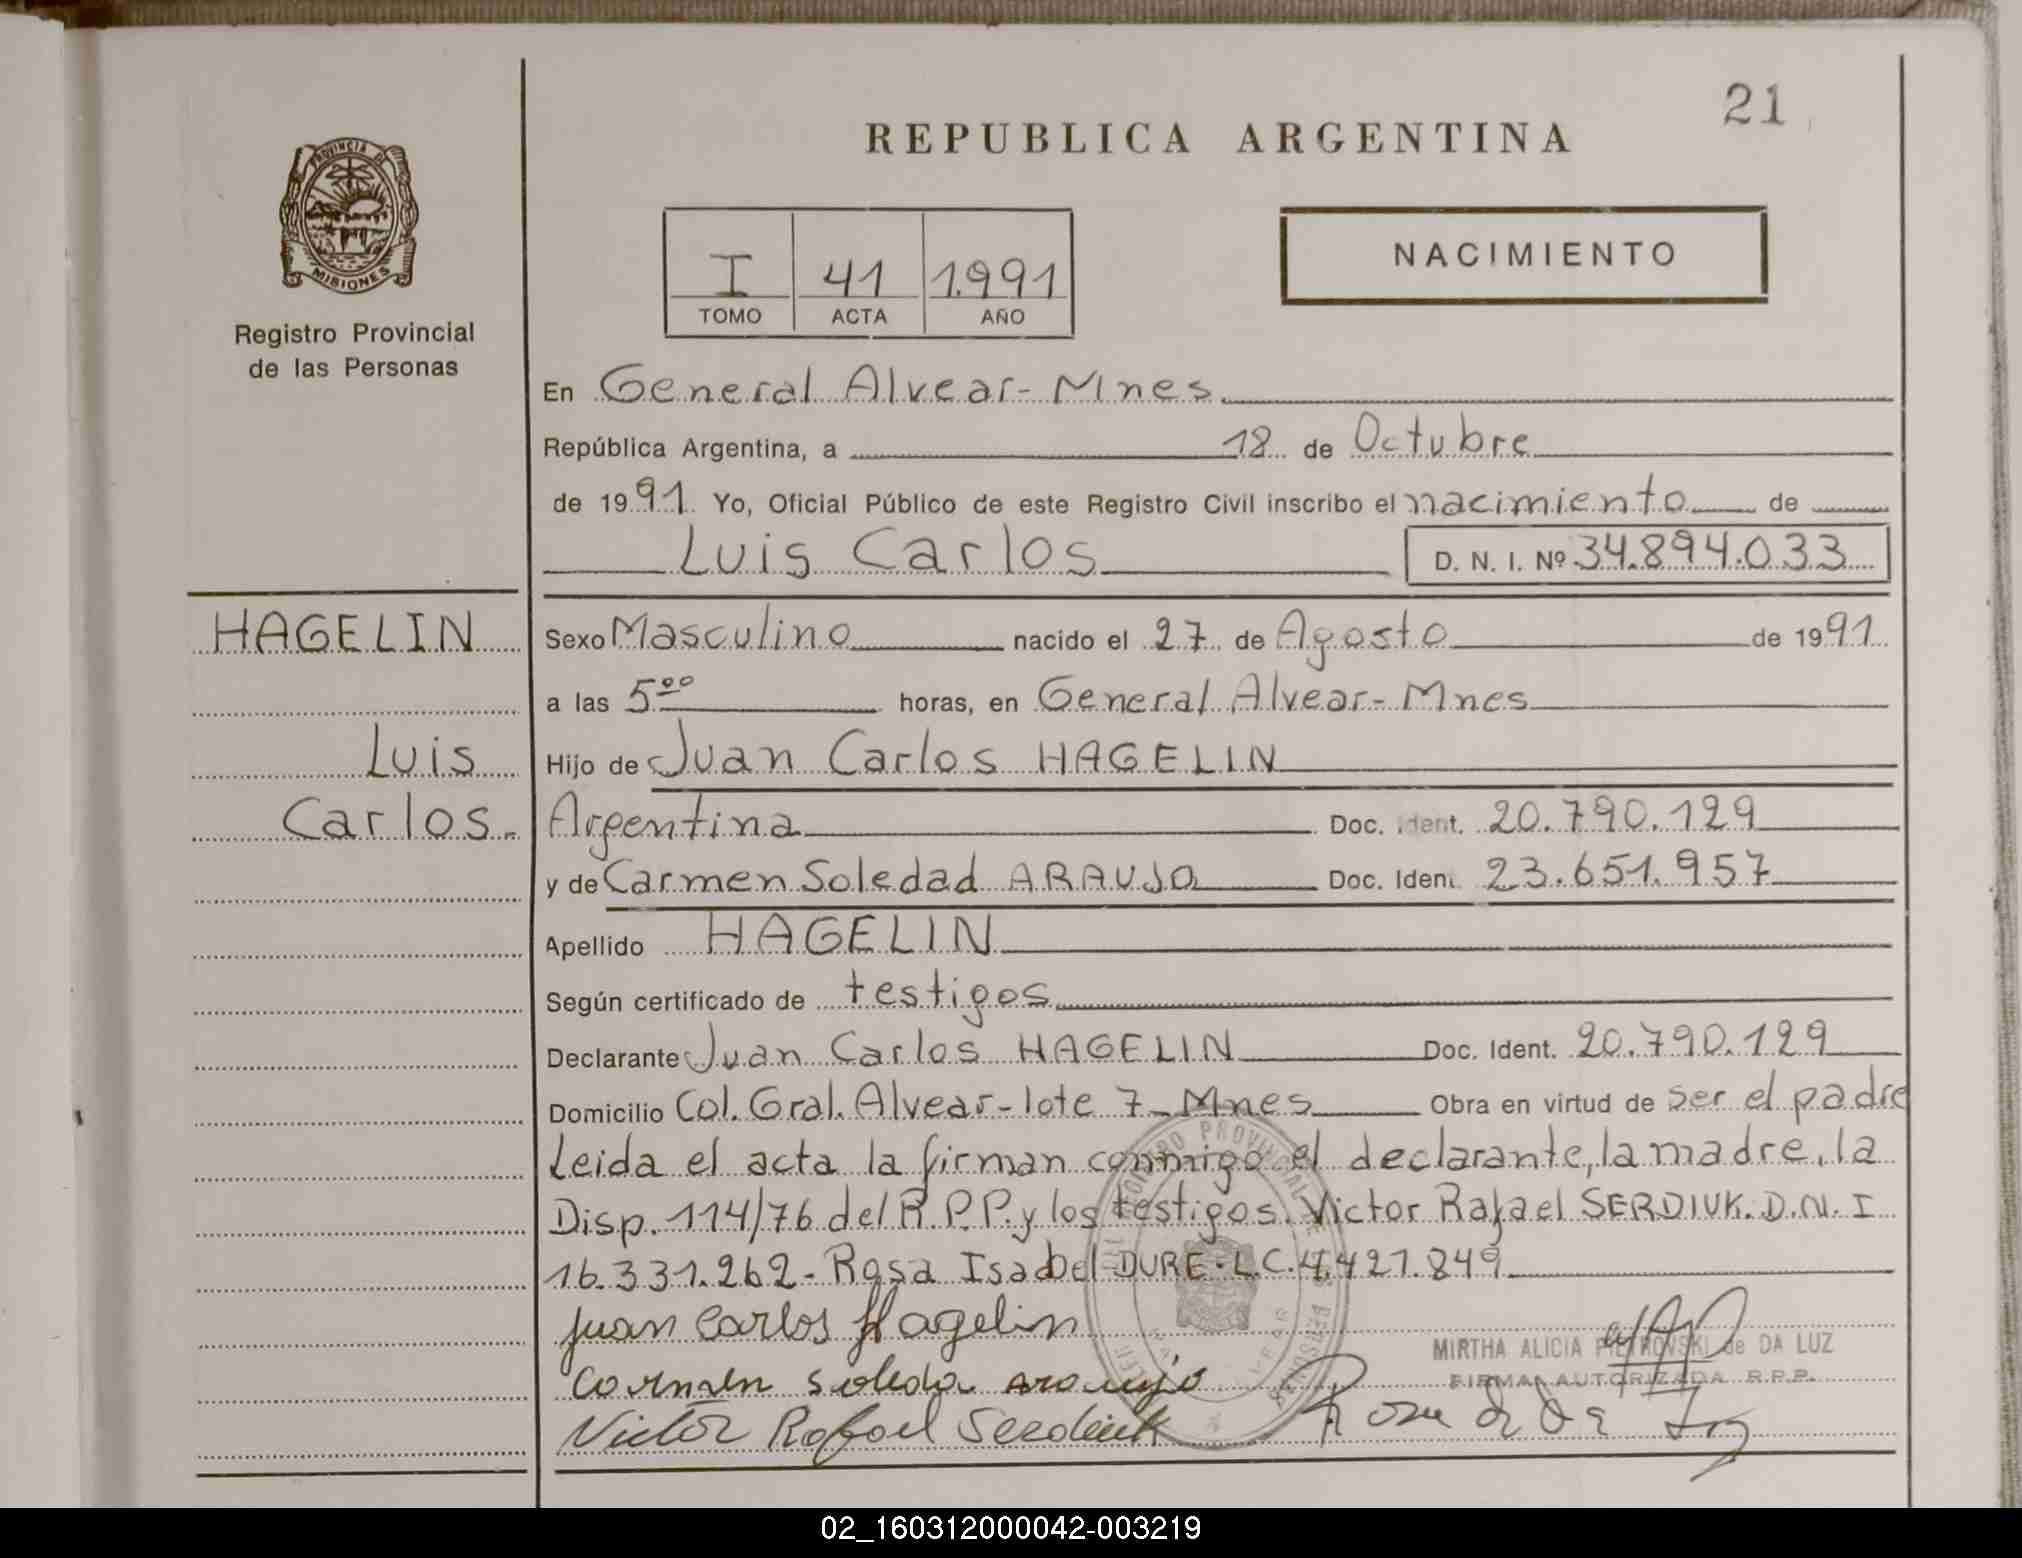 21
REPUBLICA ARGENTINA
PROVINCIA DE
MISIONES
Registro Provincial
de las Personas
I 41 1.991
TOMO ACTA AÑO
NACIMIENTO
En General Alvear-Mnes
República Argentina, a 18 de Octubre
de 1991 Yo, Oficial Público de este Registro Civil inscribo el nacimiento de
Luis Carlos D. N. I. Nº 34.894.033
HAGELIN
Luis
Carlos.
Sexo Masculino nacido el 27 de Agosto de 1991
a las 5⁰⁰ horas, en General Alvear-Mnes
Hijo de Juan Carlos HAGELIN
Argentina Doc. Ident. 20.790.129
y de Carmen Soledad ARAUJO Doc. Ident. 23.651.957
Apellido HAGELIN
Según certificado de testigos
Declarante Juan Carlos HAGELIN Doc. Ident. 20.790.129
Domicilio Col. Gral. Alvear-lote 7-Mnes Obra en virtud de ser el padre
Leida el acta la firman conmigo el declarante, la madre, la
Disp. 114/76 del R.P.P. y los testigos. Victor Rafael SERDIUK. D.N.I
16.331.262- Rosa Isabel DURE. L.C. 4.421.849
Juan Carlos Hagelin
MIRTHA ALICIA PIETROVSKI de DA LUZ
FIRMA AUTORIZADA R.P.P.
Carmen Soleda Araujo
Victor Rafael Serdiuk
02_160312000042-003219